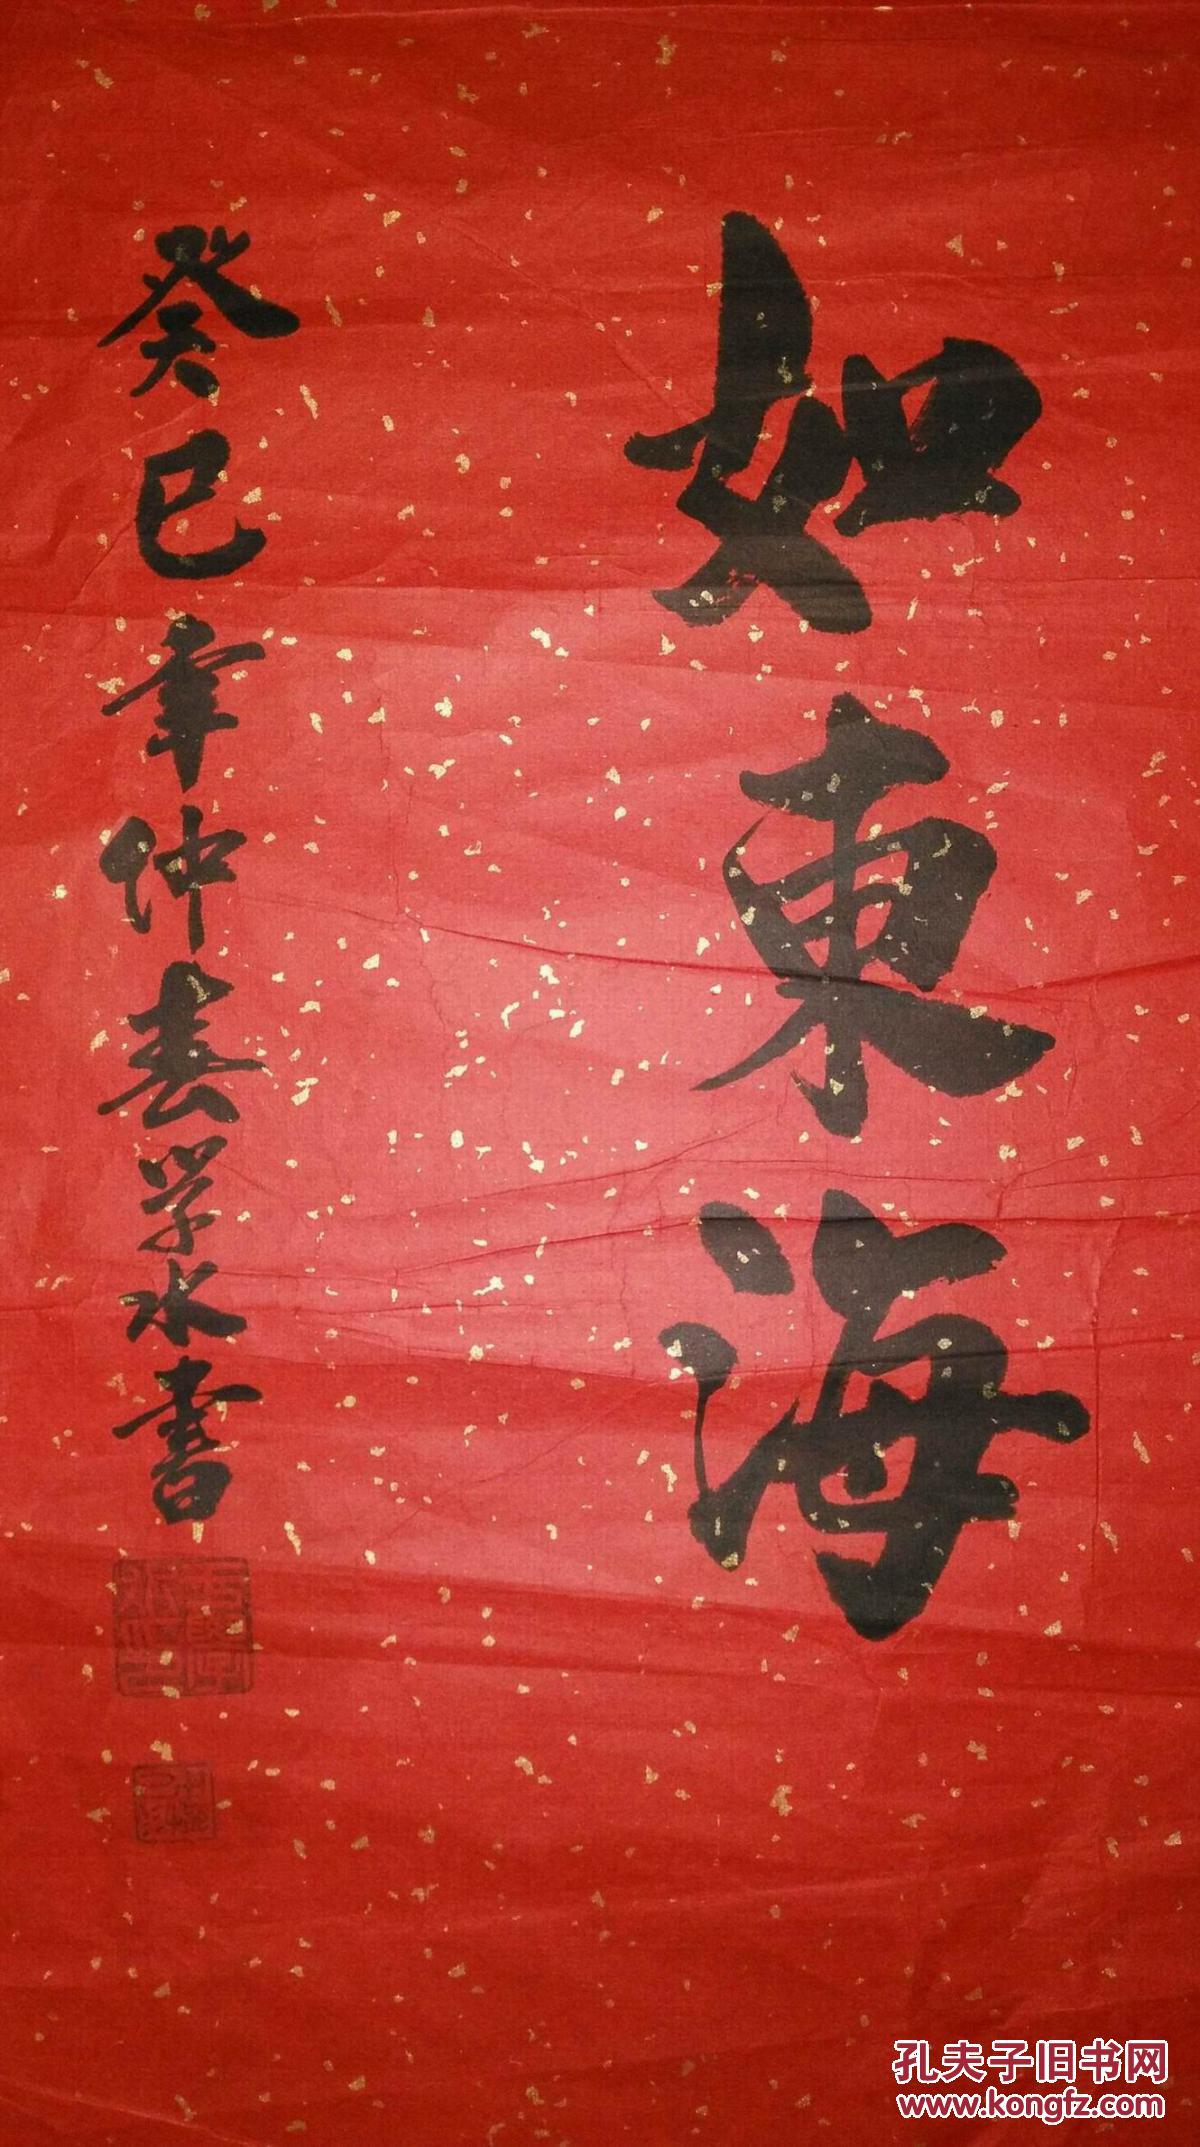 如東海
癸巳年仲春学水書
孔夫子旧书网
www.kongfz.com